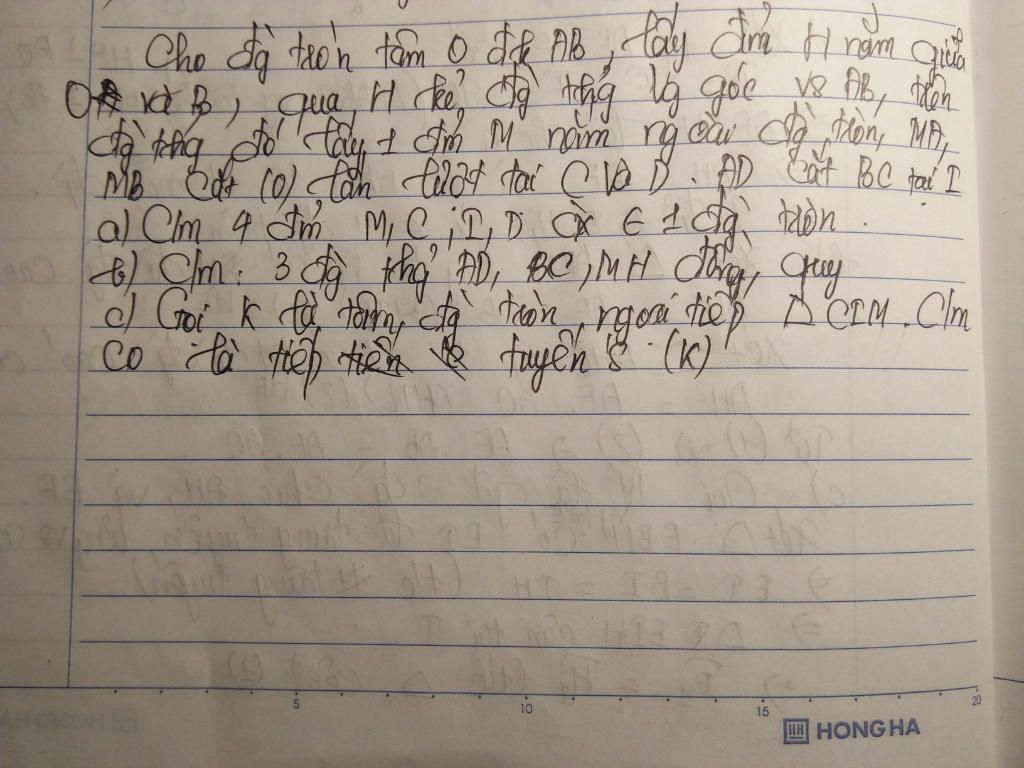 Cho đg tròn tâm O đk AB, lấy đỉm H nằm giữa
O và B, qua H kẻ đg thg vg góc vs AB, trên
đg thg đó lấy 1 đỉm M nằm ngoài đg tròn, MA,
MB cắt (O) lần lượt tại C và D. AD cắt BC tại I
a) C/m 4 đỉm M, C, I, D cx ∈ 1 đg tròn.
b) C/m: 3 đg thg AD, BC, MH đồng quy
c) Gọi K là tâm đg tròn ngoại tiếp Δ CIM. C/m
CO là tiếp tuyến (K)
5 10 15 20
HONG HA